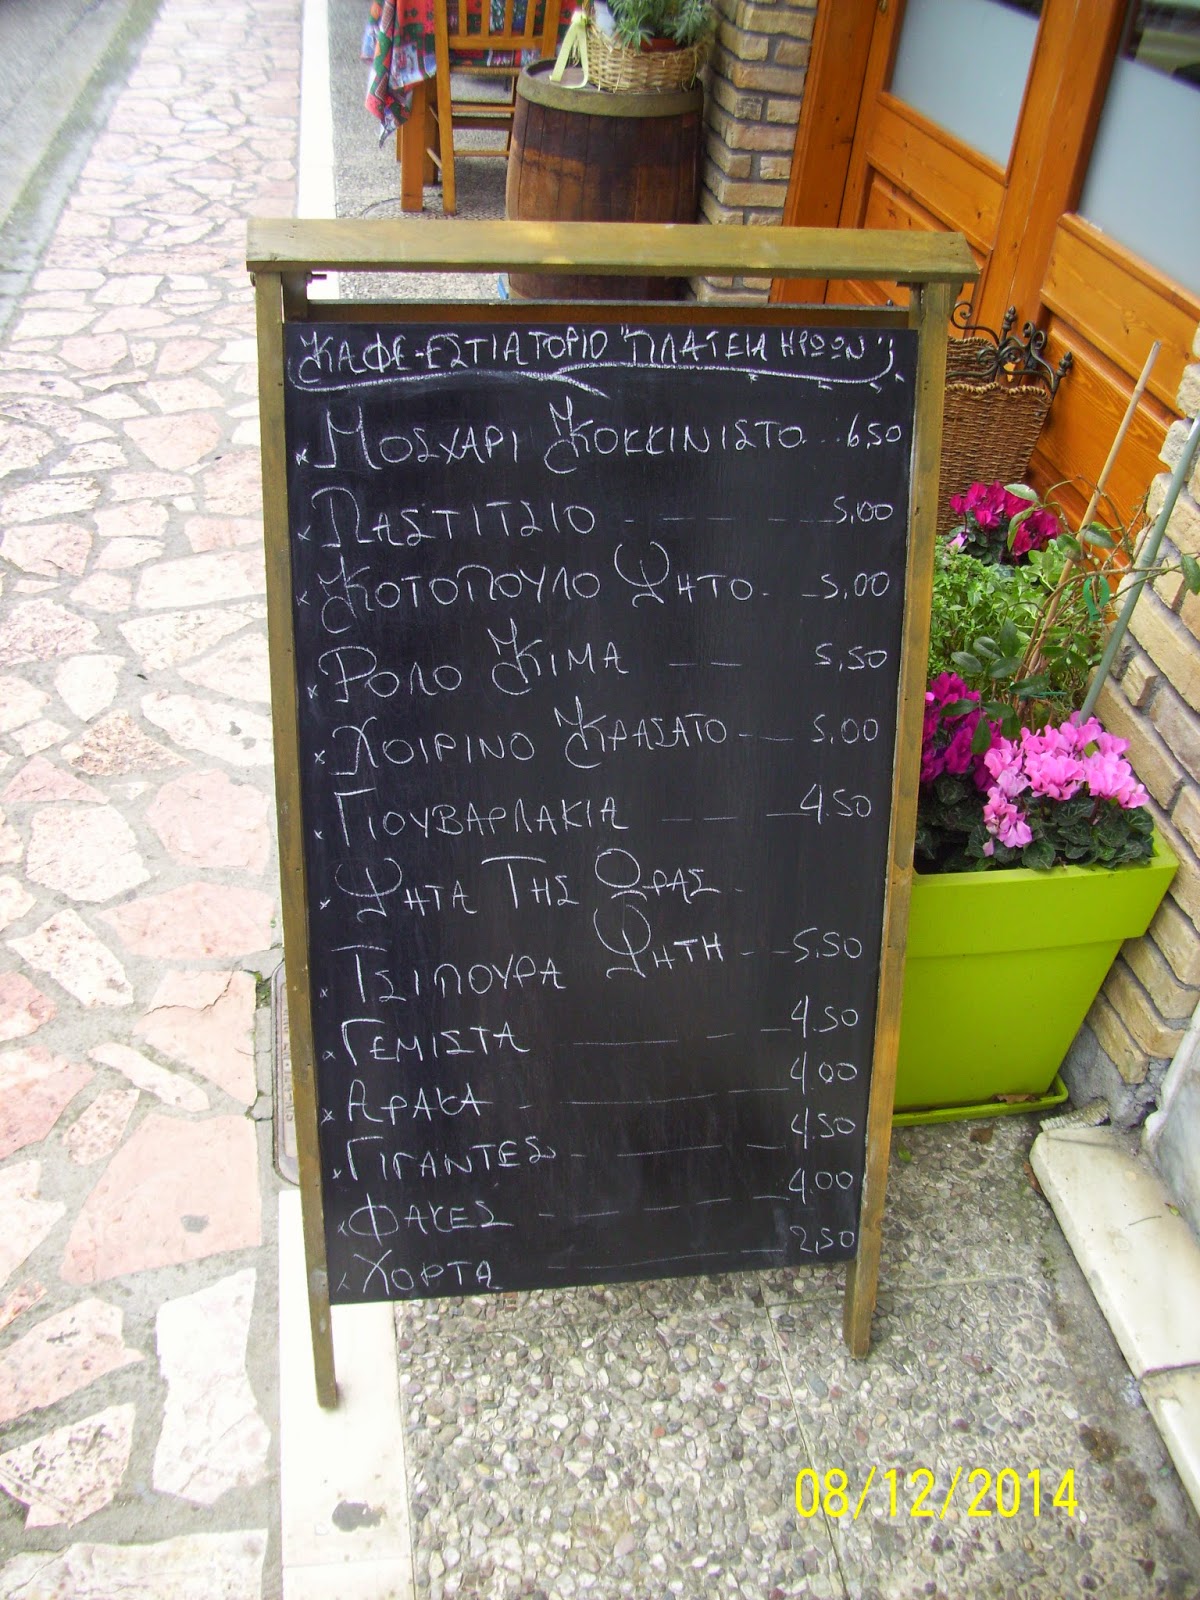 ΚΑΦΕ-ΕΣΤΙΑΤΟΡΙΟ "ΠΛΑΤΕΙΑ ΗΡΩΩΝ"
× ΜΟΣΧΑΡΙ ΚΟΚΚΙΝΙΣΤΟ 6,50
× ΠΑΣΤΙΤΣΙΟ 5,00
× ΚΟΤΟΠΟΥΛΟ ΨΗΤΟ 5,00
× ΡΟΛΟ ΚΙΜΑ 5,50
× ΧΟΙΡΙΝΟ ΚΡΑΣΑΤΟ 5,00
× ΓΙΟΥΒΑΡΛΑΚΙΑ 4,50
× ΨΗΤΑ ΤΗΣ ΩΡΑΣ
× ΤΣΙΠΟΥΡΑ ΨΗΤΗ 5,50
× ΓΕΜΙΣΤΑ 4,50
× ΑΡΑΚΑ 4,00
× ΓΙΓΑΝΤΕΣ 4,50
× ΦΑΚΕΣ 4,00
× ΧΟΡΤΑ 2,50
08/12/2014